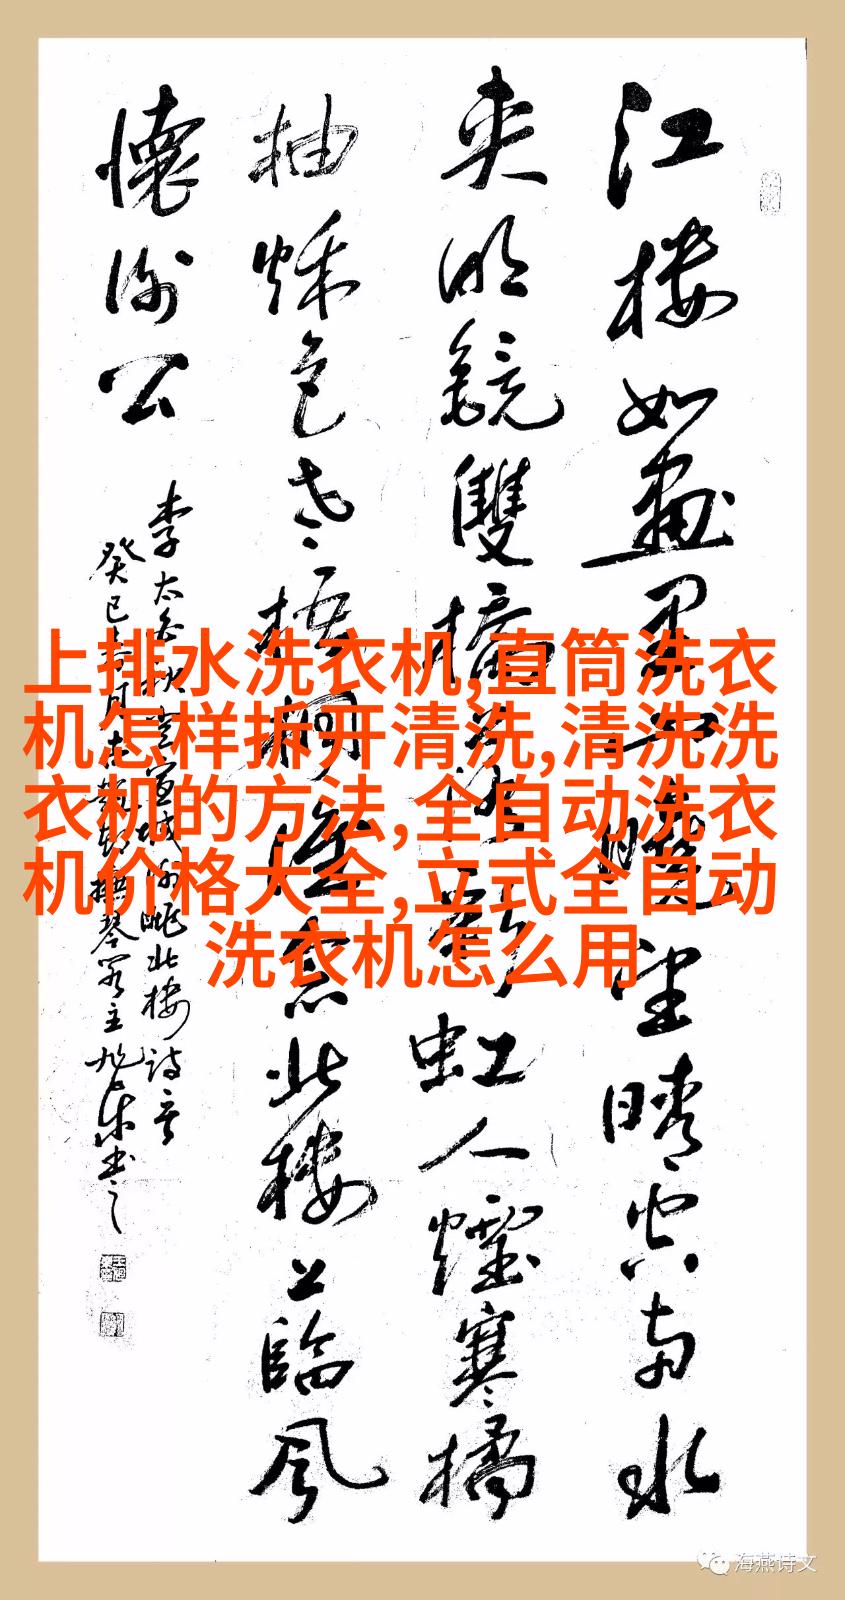 江楼如畫里山曉望晴空兩水
夾明鏡雙橋落彩虹人煙寒橘
柚秋色老梧桐誰念北楼上臨風
懷謝公
李太白秋登宣城謝眺北楼詩一首
癸巳月撫琴主書之
上排水洗衣机,直筒洗衣
机怎样拆开清洗,清洗洗
衣机的方法,全自动洗衣
机价格大全,立式全自动
洗衣机怎么用
海燕诗文